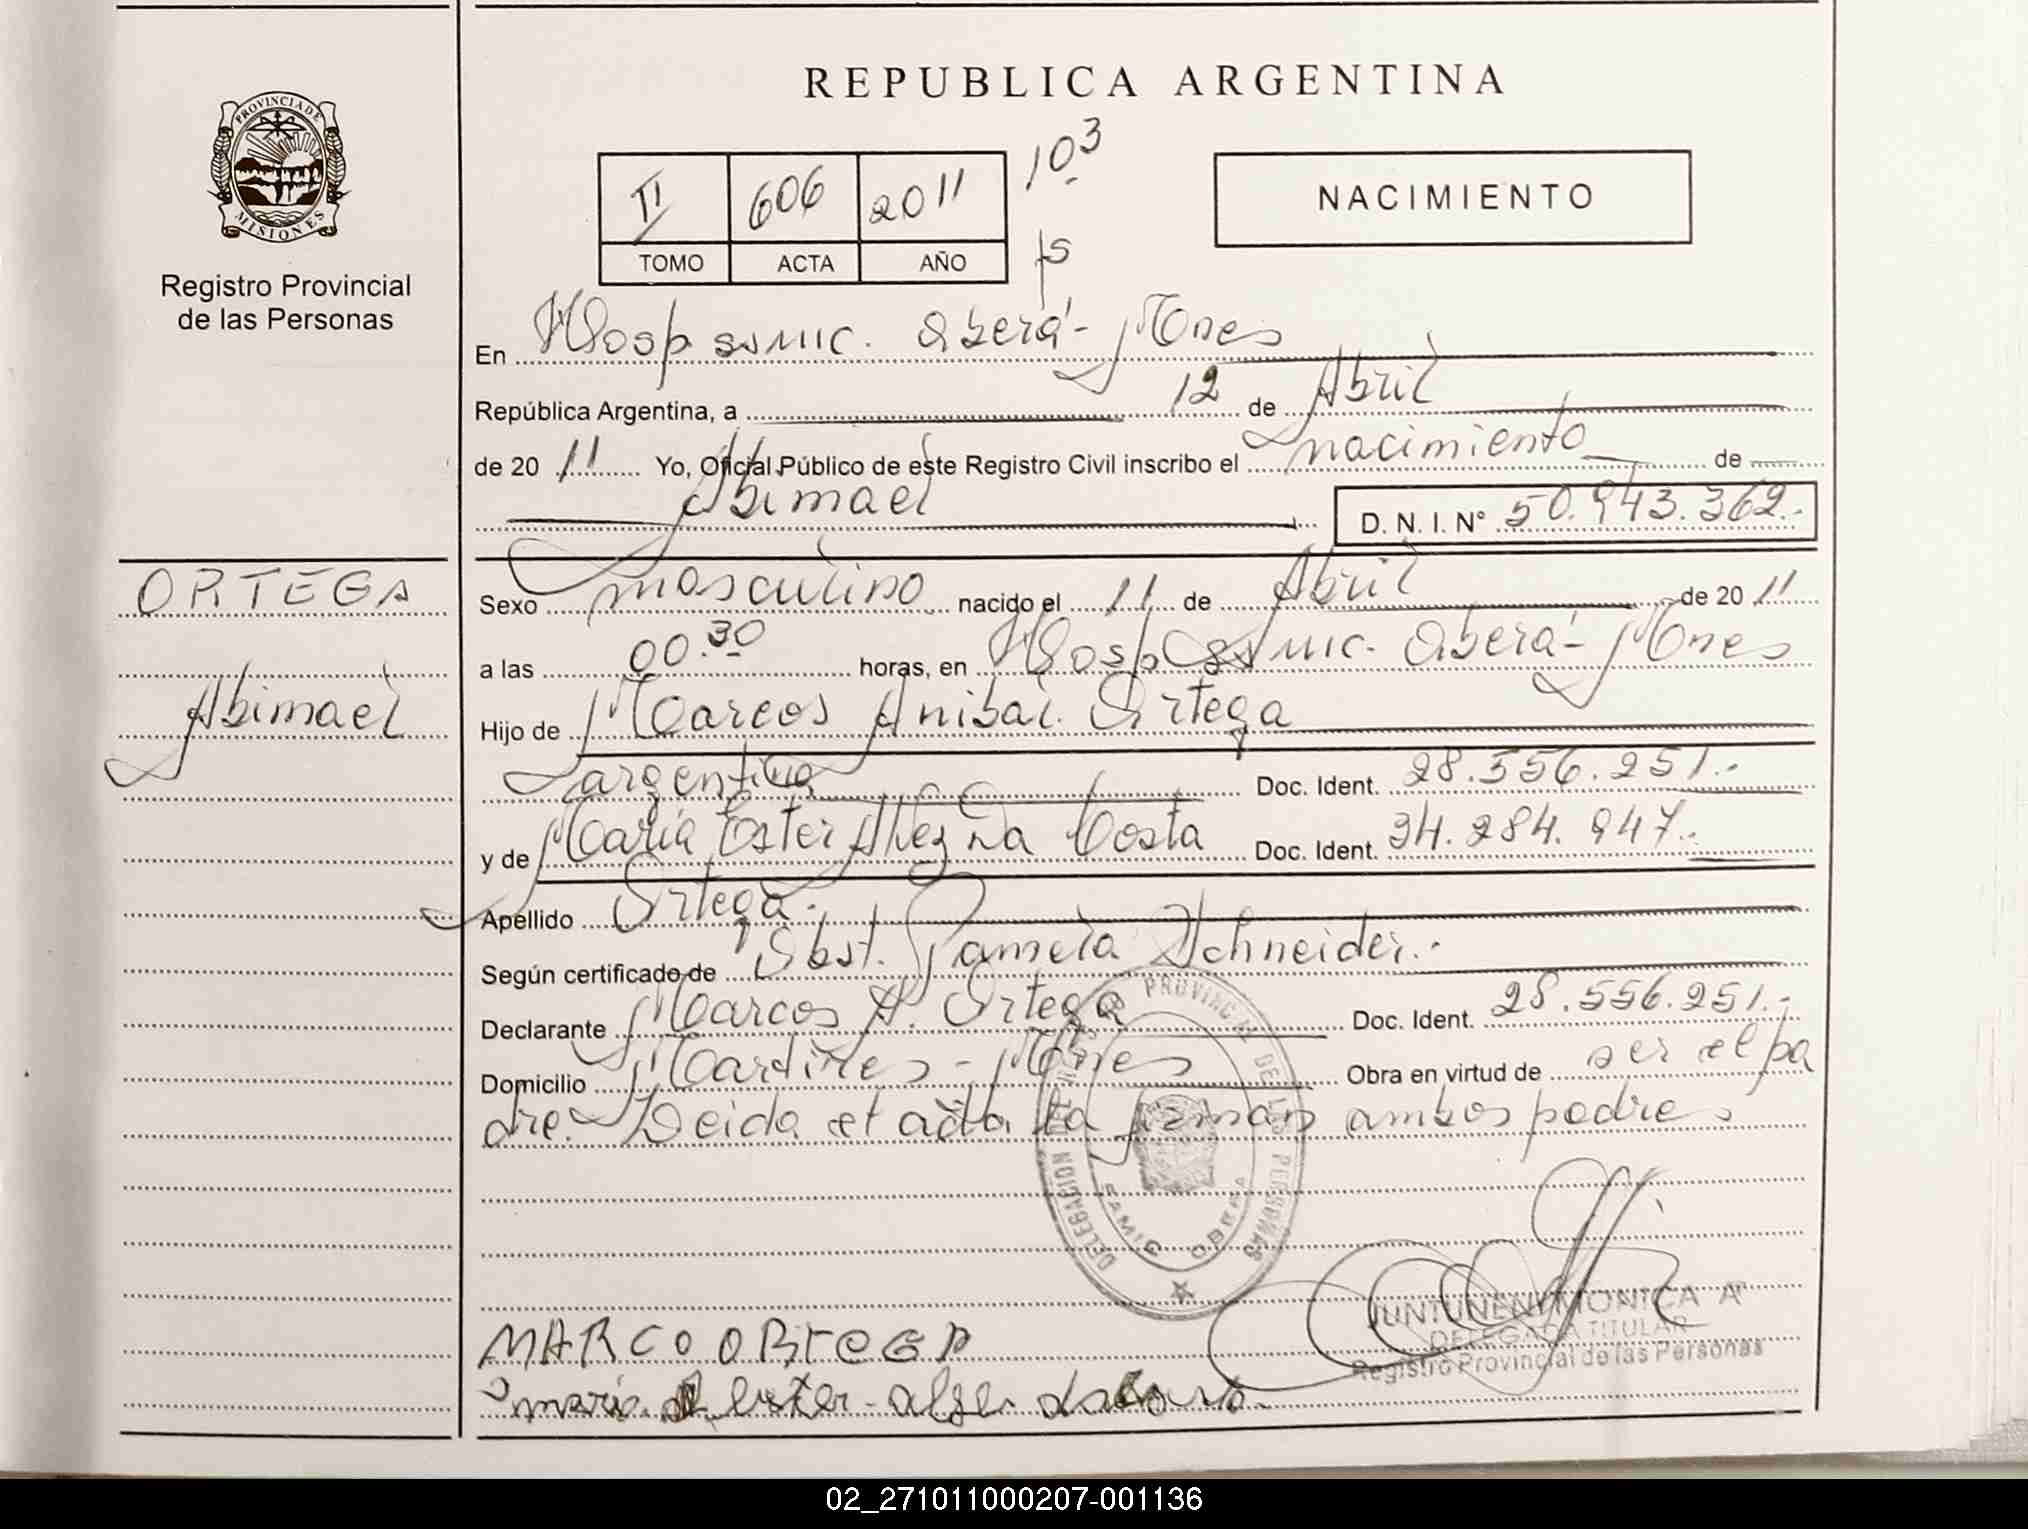 REPUBLICA ARGENTINA
PROVINCIA DE
MISIONES
Registro Provincial
de las Personas
II 606 2011 103
TOMO ACTA AÑO fs
NACIMIENTO
En Hosp samic. Oberá - Mnes
República Argentina, a 12 de Abril
de 20 11 Yo, Oficial Público de este Registro Civil inscribo el nacimiento de
Abimael D. N. I. Nº 50.943.362.-
ORTEGA
Abimael
Sexo masculino nacido el 11 de Abril de 20 11
a las 00.30 horas, en Hosp samic. Oberá - Mnes
Hijo de Marcos Anibal Ortega
argentina Doc. Ident. 28.556.251.-
y de María Ester Da Costa Doc. Ident. 34.284.947.-
Apellido Ortega.
Según certificado de Obst. Pamela Schneider.-
Declarante Marcos A. Ortega Doc. Ident. 28.556.251.-
Domicilio - Mnes Obra en virtud de ser el pa
dre. Leida el acta la firman ambos padres
DELEGACION PROVINCIAL DE LAS PERSONAS
SAMIC OBERA
JUNTUNEN MONICA A
DELEGADA TITULAR
Registro Provincial de las Personas
MARCO ORTEGA
maria ester
02_271011000207-001136